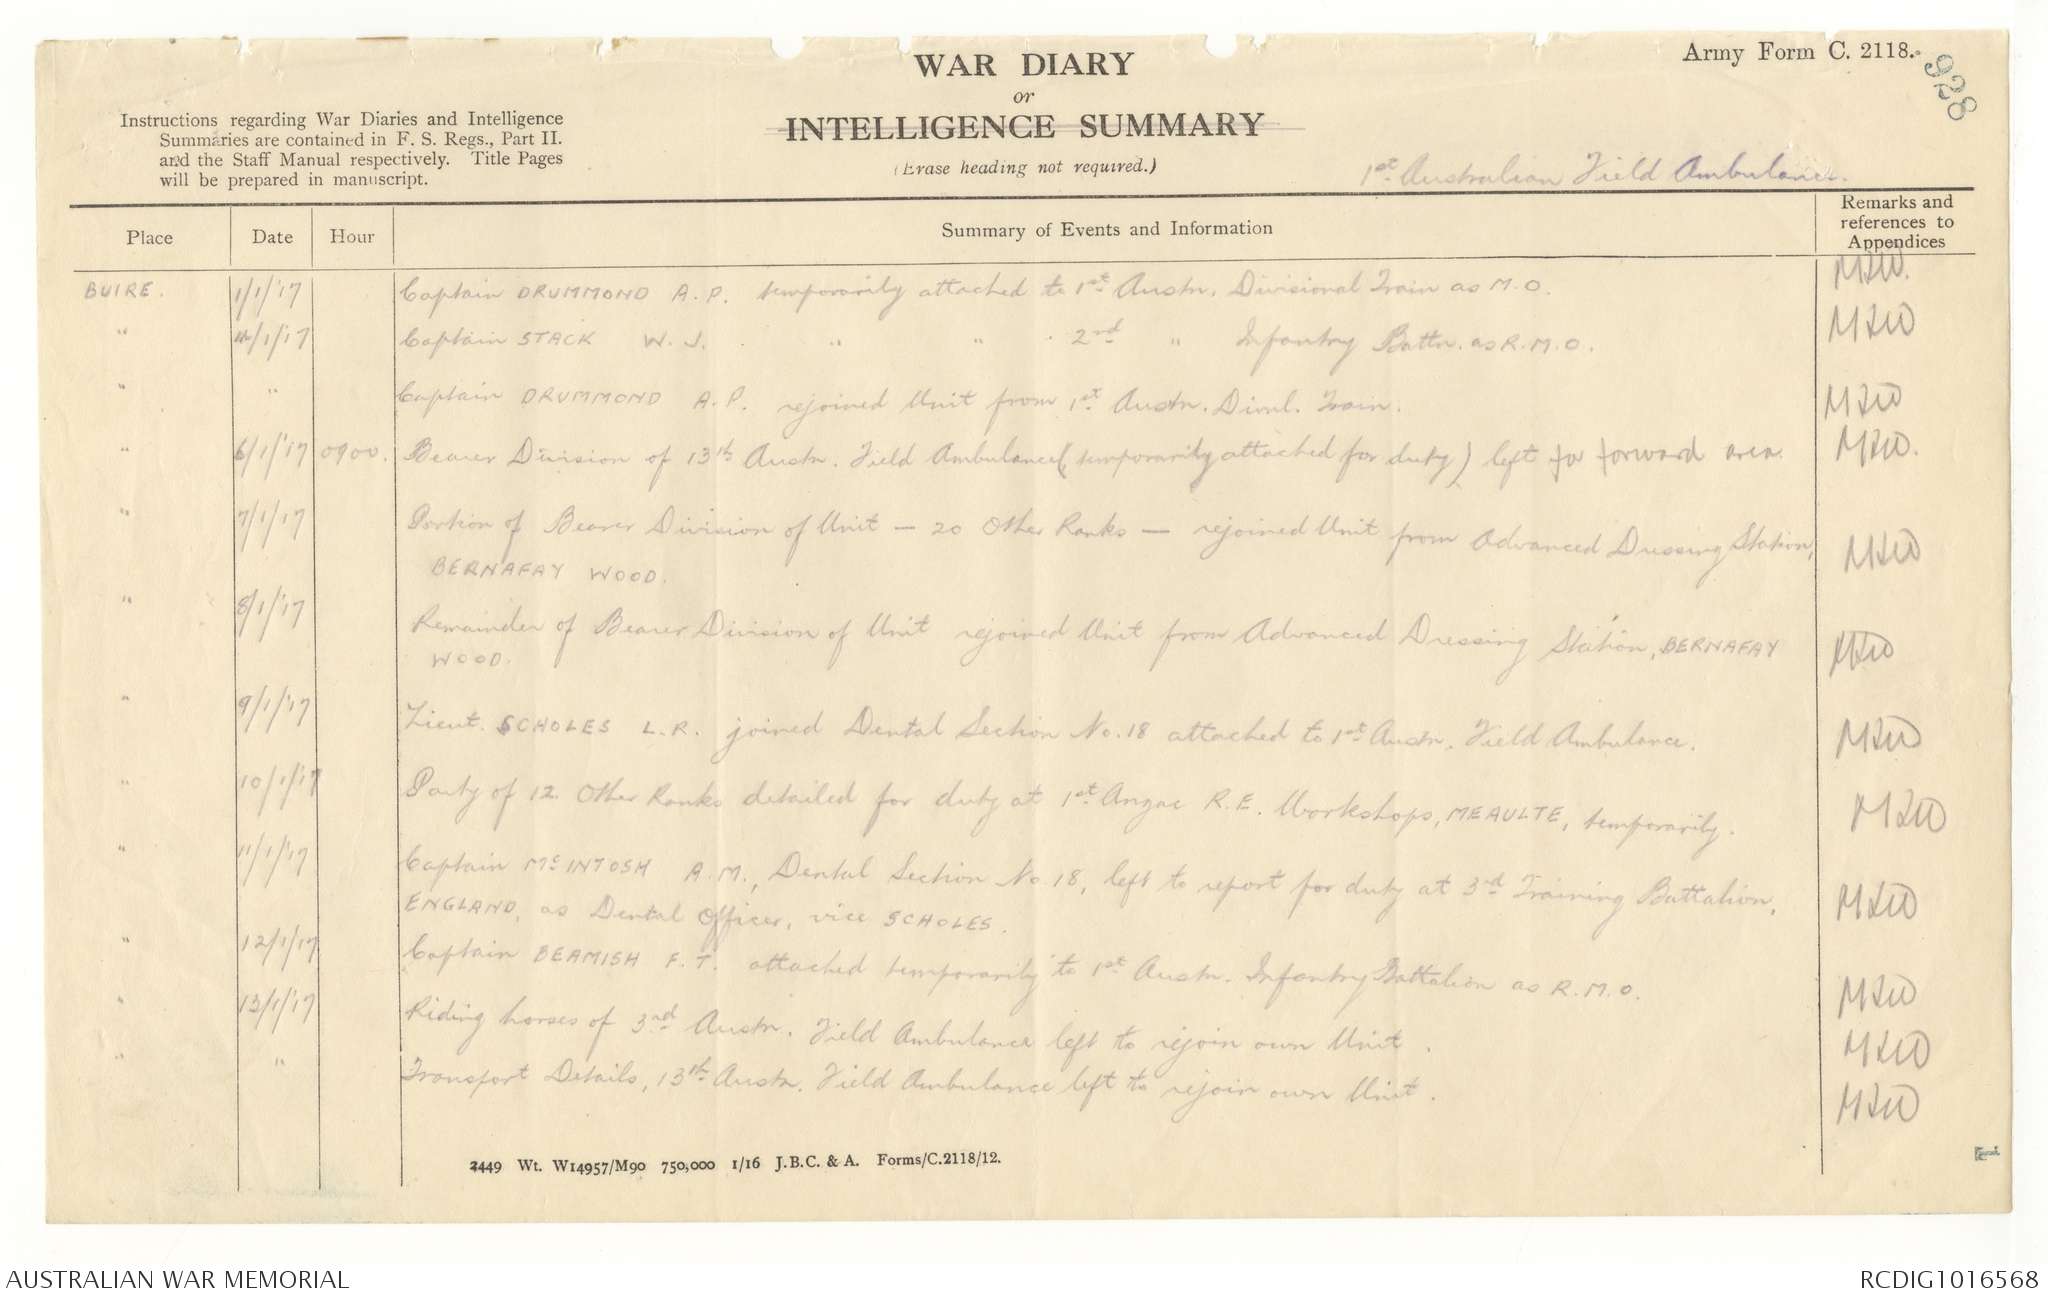 WAR DIARY
or
INTELLIGENCE SUMMARY
(Erase heading not required.)
Army Form C. 2118.
928
Instructions regarding War Diaries and Intelligence
Summaries are contained in F. S. Regs., Part II.
and the Staff Manual respectively. Title Pages
will be prepared in manuscript.
1st Australian Field Ambulance.
Place Date Hour Summary of Events and Information Remarks and references to Appendices
BUIRE. 1/1/'17 Captain DRUMMOND A.P. temporarily attached to 1st Austn. Divisional Train as M.O.
" 4/1/'17 Captain STACK W.J. " " 2nd " Infantry Battn. as R.M.O.
" " Captain DRUMMOND A.P. rejoined Unit from 1st Austn. Divnl. Train.
" 6/1/'17 0900. Bearer Division of 13th Austn. Field Ambulance (temporarily attached for duty) left for forward area
" 7/1/'17 Portion of Bearer Division of Unit — 20 Other Ranks — rejoined Unit from Advanced Dressing Station,
BERNAFAY WOOD.
" 8/1/'17 Remainder of Bearer Division of Unit rejoined Unit from Advanced Dressing Station, BERNAFAY
WOOD.
" 9/1/'17 Lieut. SCHOLES L.R. joined Dental Section No. 18 attached to 1st Austn. Field Ambulance.
" 10/1/'17 Party of 12 Other Ranks detailed for duty at 1st Anzac R.E. Workshops, MEAULTE, temporarily.
" 11/1/'17 Captain McINTOSH A.M., Dental Section No. 18, left to report for duty at 3rd Training Battalion,
ENGLAND, as Dental Officer, vice SCHOLES.
" 12/1/17 Captain BEAMISH F.T. attached temporarily to 1st Austn. Infantry Battalion as R.M.O.
" 13/1/'17 Riding horses of 3rd Austn. Field Ambulance left to rejoin own Unit.
" " Transport Details, 13th Austn. Field Ambulance left to rejoin own Unit.
2449 Wt. W14957/M90 750,000 1/16 J.B.C. & A. Forms/C.2118/12.
AUSTRALIAN WAR MEMORIAL
RCDIG1016568